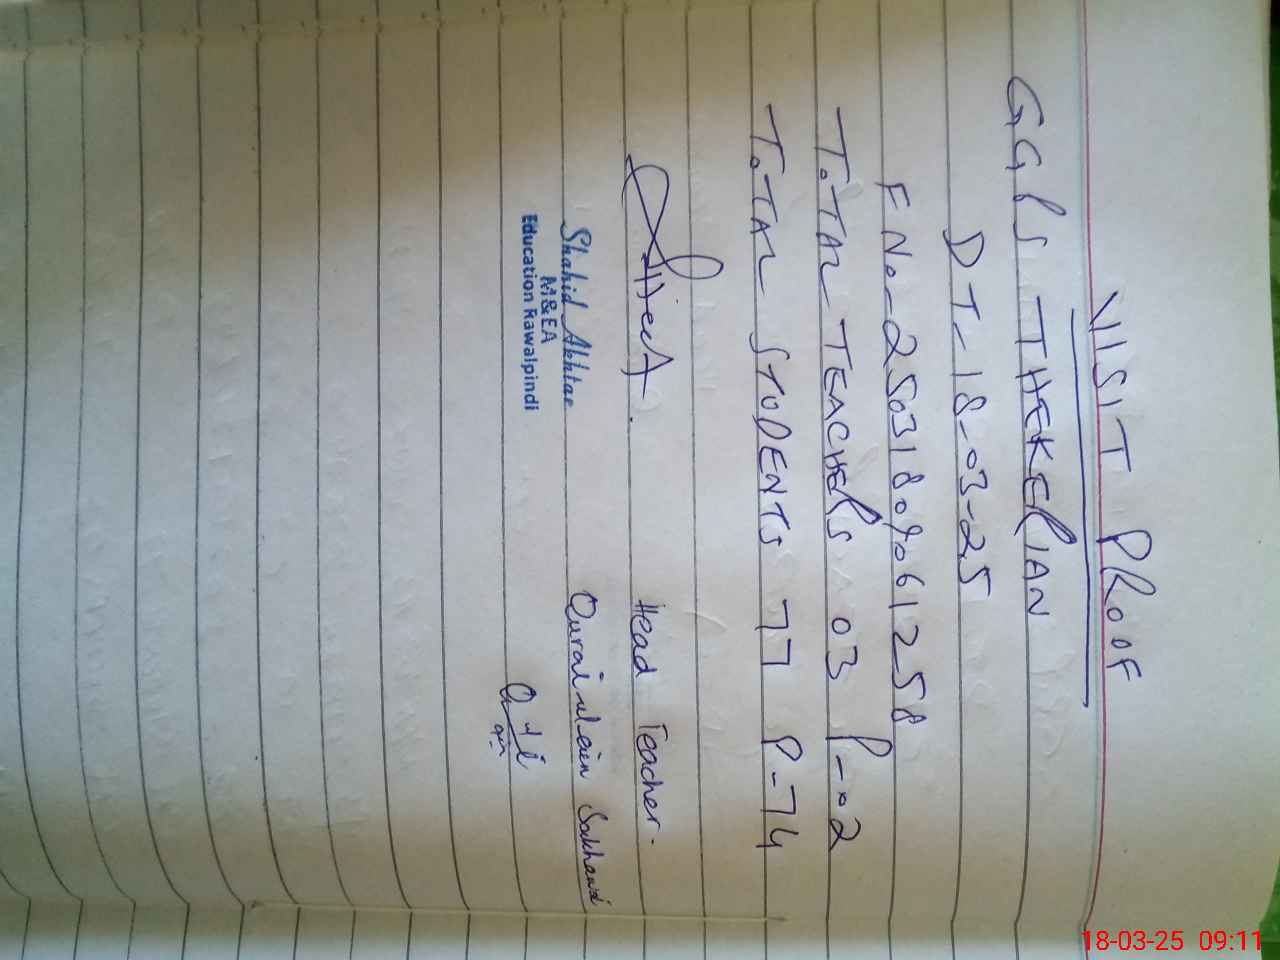 VISIT PROOF
GGPS THEKERIAN
DT-18-03-25
FNo-25031809061258
ToTAL TEACHERS 03 P-02
ToTAL STUDENTS 77 P-74
Shahid Akhtar
M&EA
Education Rawalpindi
Head Teacher.
Qurat-ul-ain
18-03-25 09:11